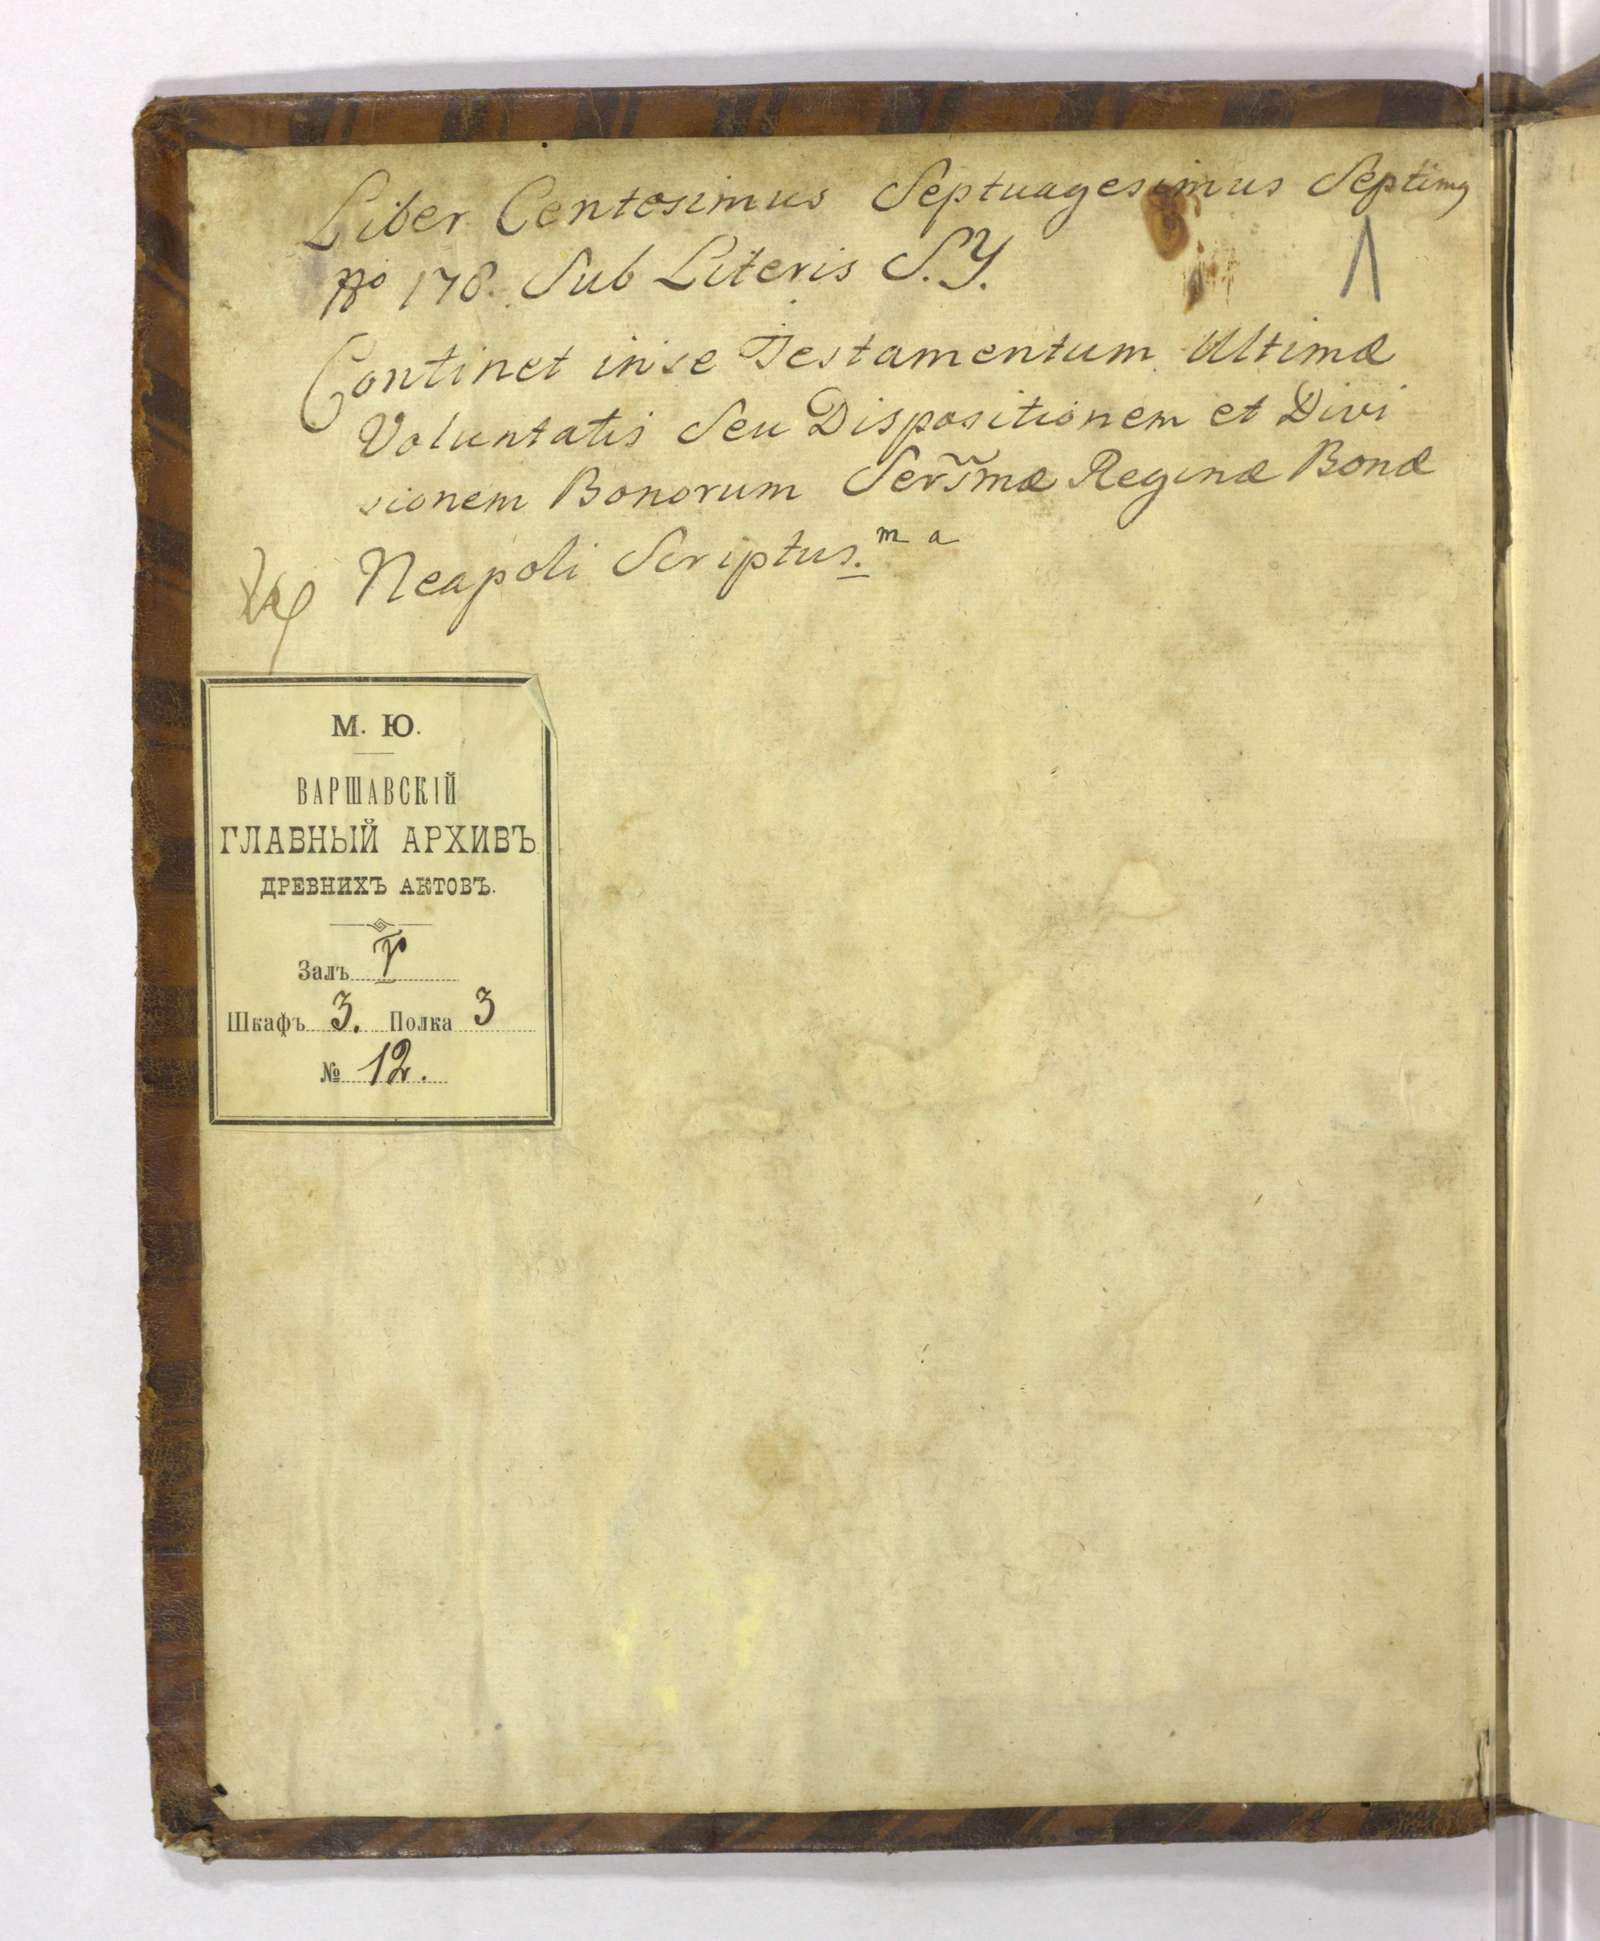 Liber Centesimus Septuagesimus Septimq
No 178. Sub Literis S.Y.
Continet in se Testamentum Ultimæ
Voluntatis Seu Dispositionem et Divi
sionem Bonorum Serr̃smæ Reginæ Bonæ
Neapoli Scriptus. m a
М. Ю.
ВАРШАВСКІЙ
ГЛАВНЫЙ АРХИВЪ
ДРЕВНИХЪ АКТОВЪ.
Залъ
Шкафъ 3. Полка 3
№ 12.